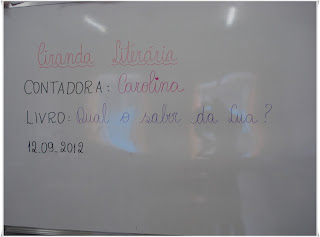 Ciranda Literária
CONTADORA: Carolina
LIVRO: Qual o sabor da Lua?
12.09.2012